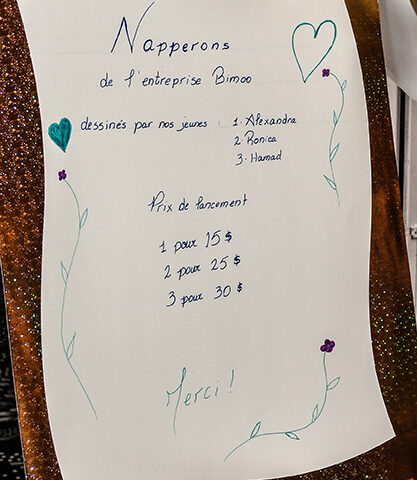 Napperons
de l'entreprise Bimoo
dessinés par nos jeunes : 1. Alexandra
2 Ronica
3. Hamad
Prix de lancement
1 pour 15 $
2 pour 25 $
3 pour 30 $
Merci !